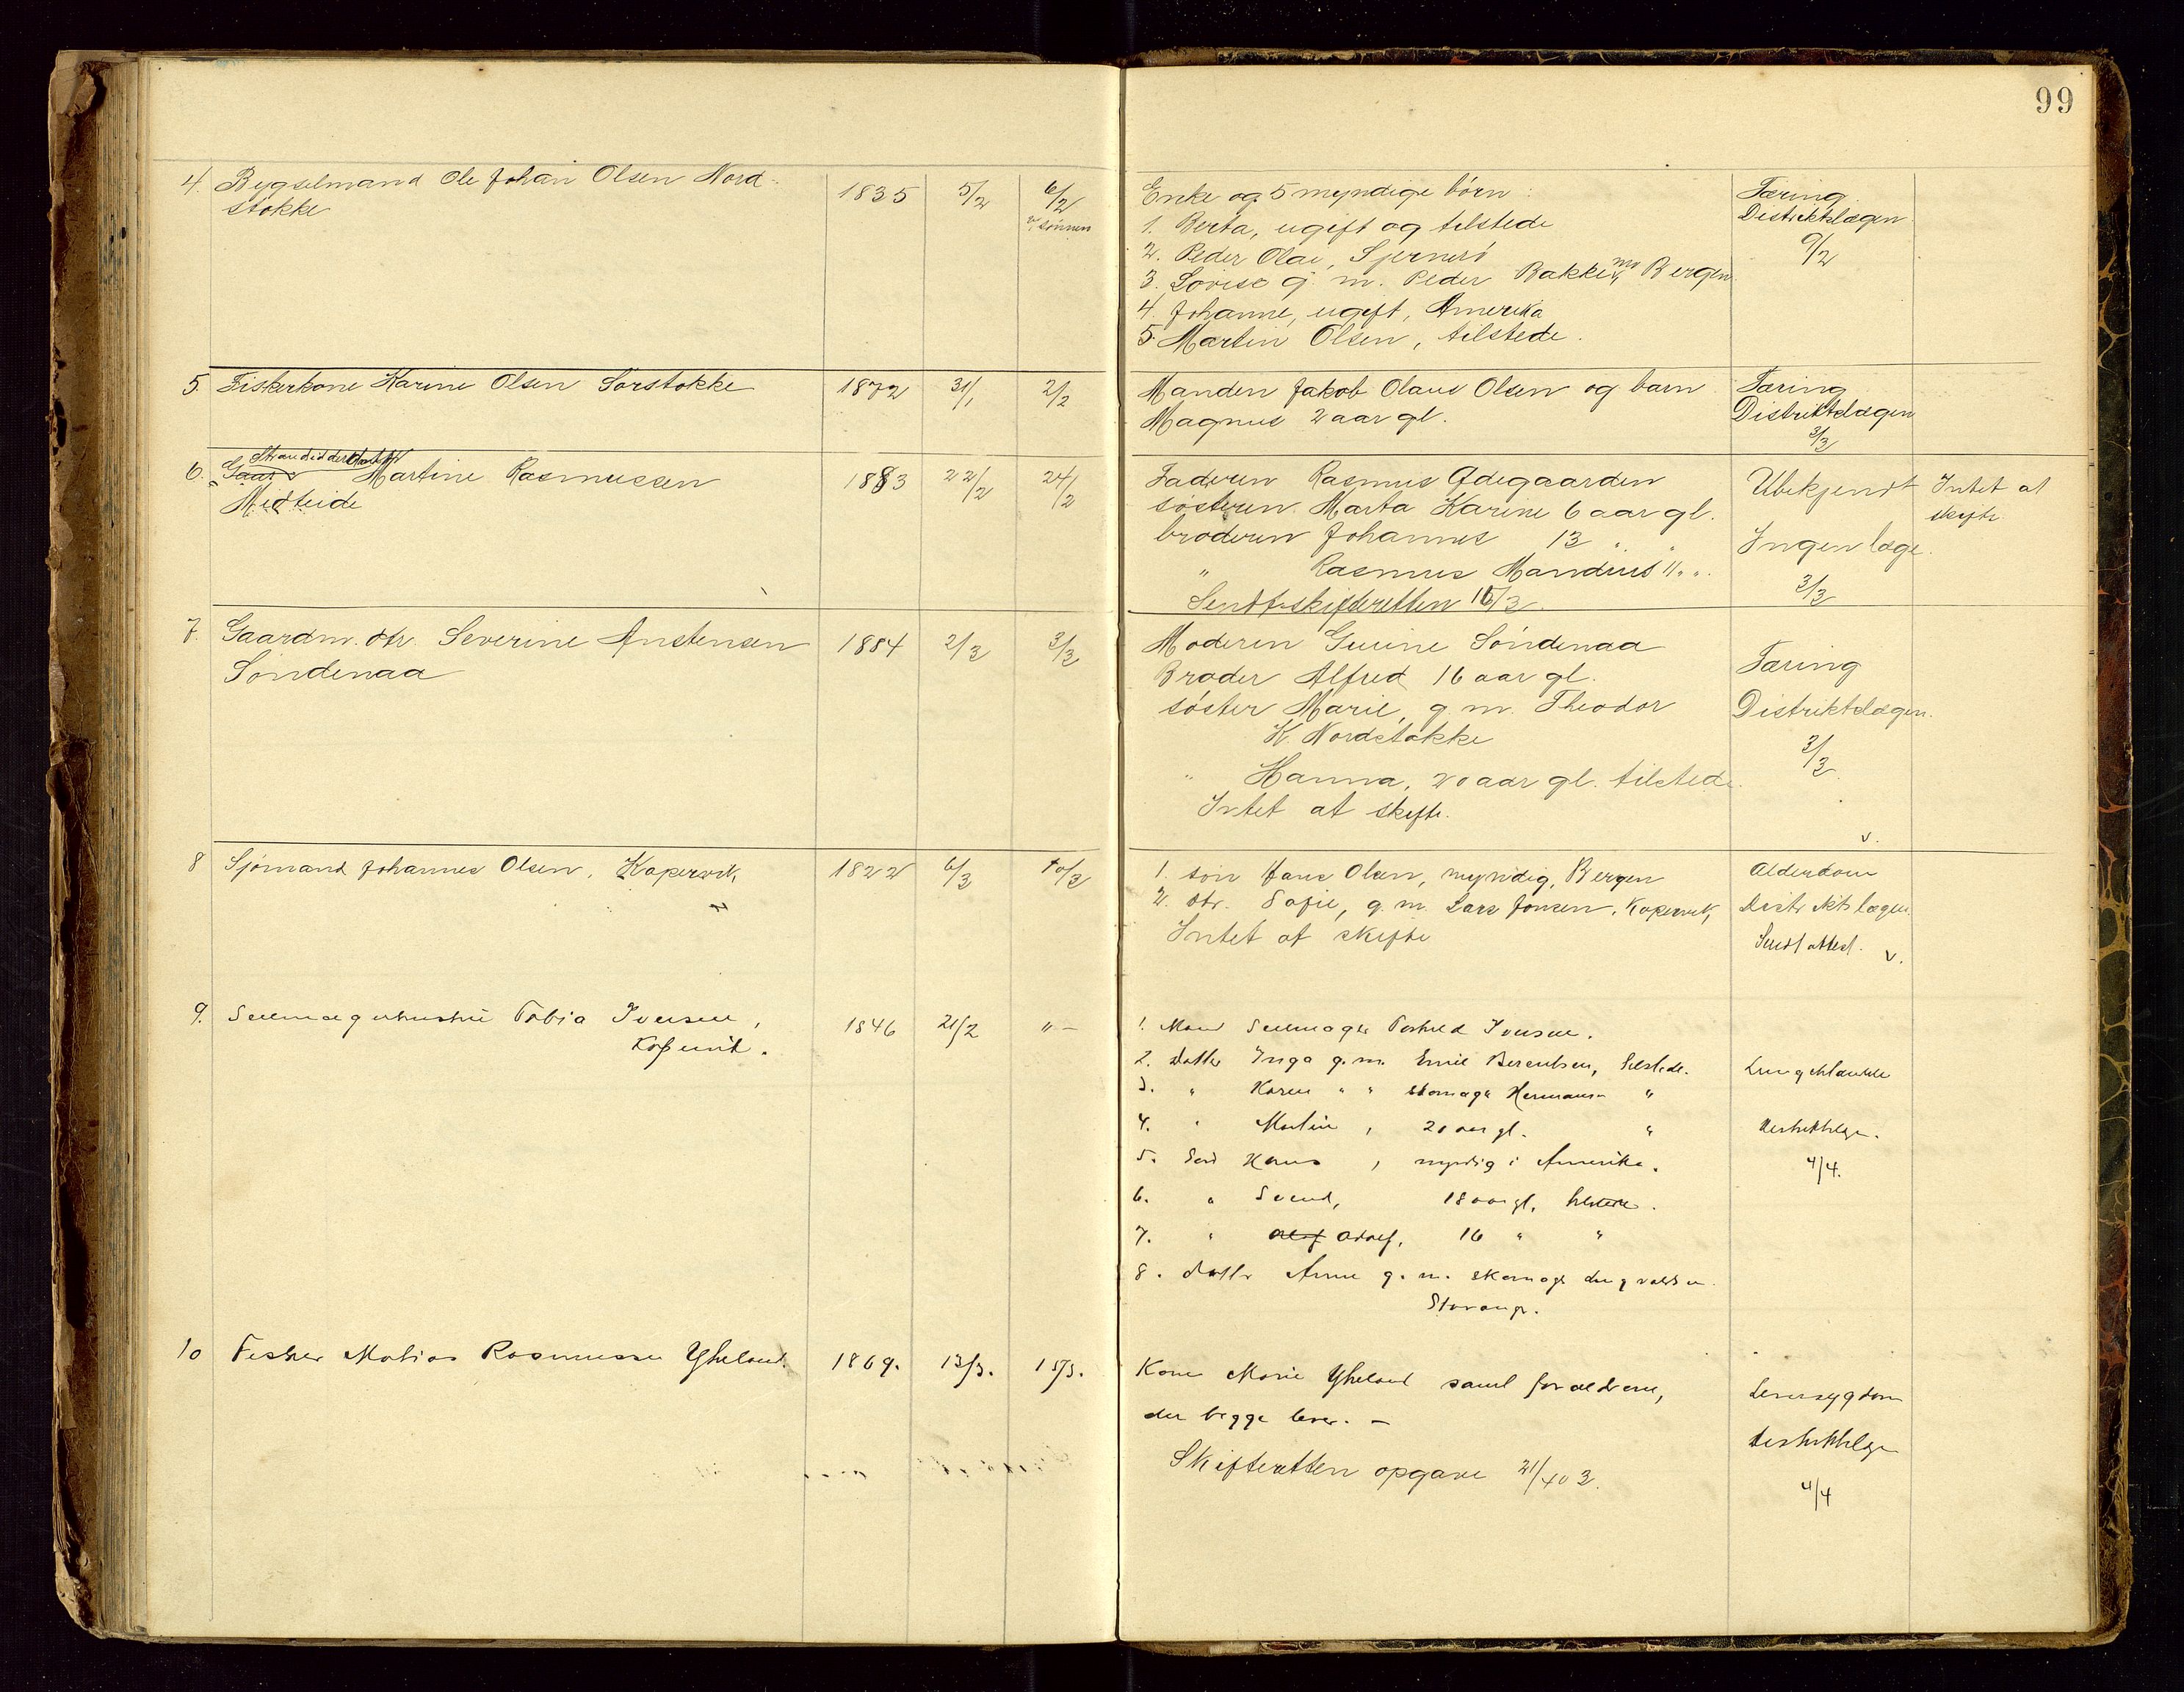 99
4. Bygselmand Ole Johan Olsen Nord-
stokke
1835 5/2 6/2
v/ sønnen
Enke og 5 myndige børn:
1. Berta, ugift og tilstede
2. Peder Olai, Sjernerø
3. Lovise g. m. Peder Bakke, Bergen
4. Johanne, ugift, Amerika
5. Martin Olsen, tilstede.
Tæring
Distriktslægen
9/2
5 Fiskerkone Karine Olsen Sørstokke
1872 31/1 2/2
Manden Jakob Olaus Olsen og barn
Magnus 2 aar gl.
Tæring
Distriktslægen
3/3
6. Strandsidder
Gaar Martine Rasmussen
Medteide
1883 22/2 24/2
Faderen Rasmus Ødegaarden
søsteren Marta Karine 6 aar gl.
broderen Johannes 13 " "
" Rasmus Mandius 11 " "
Sendt skifteretten 16/3.
Ubekjendt
Ingen læge.
3/3
Intet at
skifte
7. Gaardm. dtr. Severine Anstensen
Søndenaa
1884 2/3 3/3
Moderen Gurine Søndenaa
Broder Alfred 16 aar gl.
søster Marie, g. m. Theodor
K Nordstokke
" Hanna, 20 aar gl. tilstede.
Intet at skifte.
Tæring
Distriktslægen.
3/3
v.
8 Sjømand Johannes Olsen, Kopervik
1822 6/3 10/3
1. søn Hans Olsen, myndig, Bergen
2. dtr. Sofie, g. m. Lars Jonsen, Kopervik,
Intet at skifte
Alderdom
Distriktslægen
Sendt attest. v.
9. Seilmagerhustru Tobia Iversen,
Kopervik.
1846 21/2 " -
1. Mand Seilmager Iversen.
2. Datter Inga g. m. Emil Berentsen, tilstede.
3. " Karen " " skomager Hermansen "
4. " Martine, 20 aar gl. "
5. Søn Hans, myndig i Amerika.
6. " Svend, 18 aar gl. tilstede.
7. " Alf Adolf, 16 " "
8. datter Anne g. m. skomager
Stavanger.
Distriktslæge.
4/4.
10 Fisker Matias Rasmussen Ytreland.
1869. 13/3. 15/3.
Kone Marie Ytreland samt forældrene,
der begge lever. -
Skifteretten opgave 21/4 03.
Leversygdom
Distriktslæge
4/4